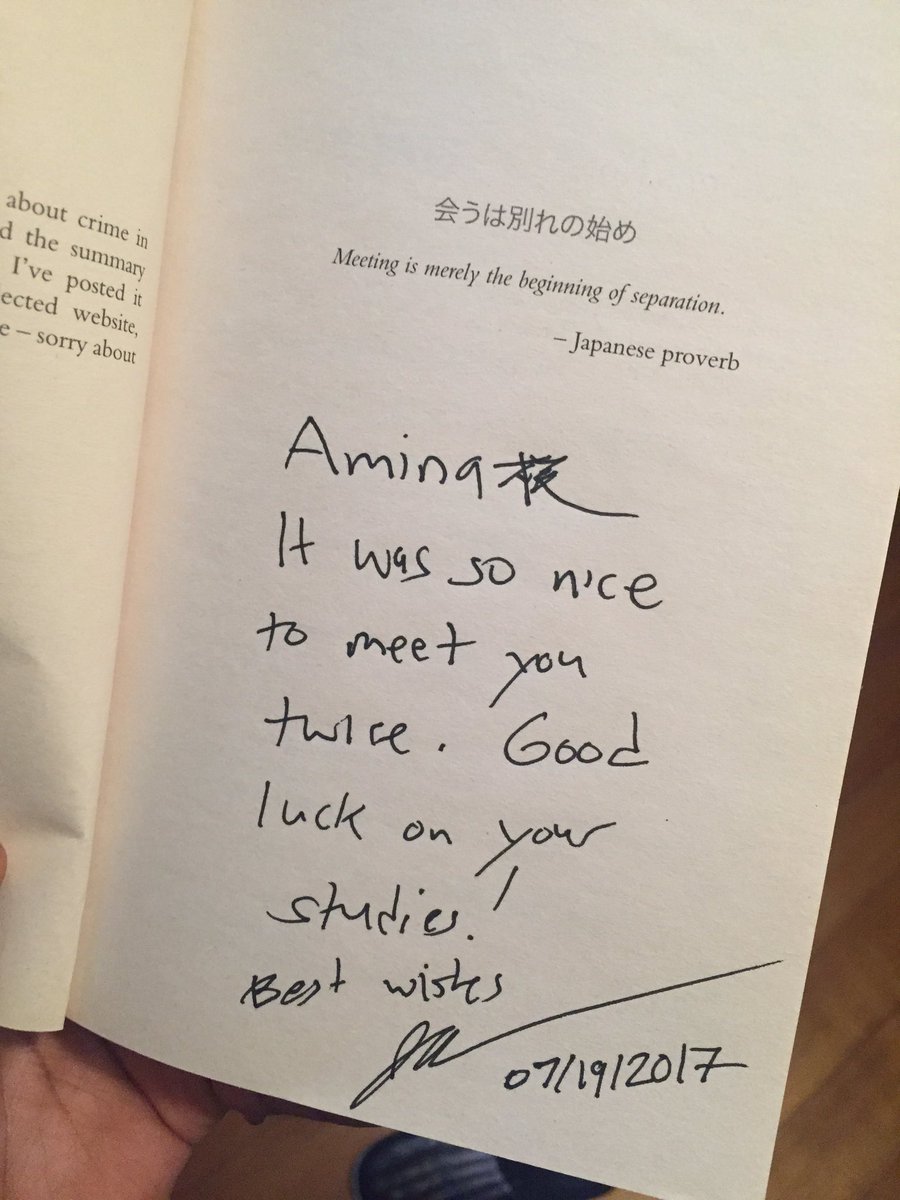 about crime in
d the summary
I've posted it
ected website,
e – sorry about
会うは別れの始め
Meeting is merely the beginning of separation.
– Japanese proverb
Amina様
It was so nice
to meet you
twice. Good
luck on your
studies!
Best wishes
07/19/2017